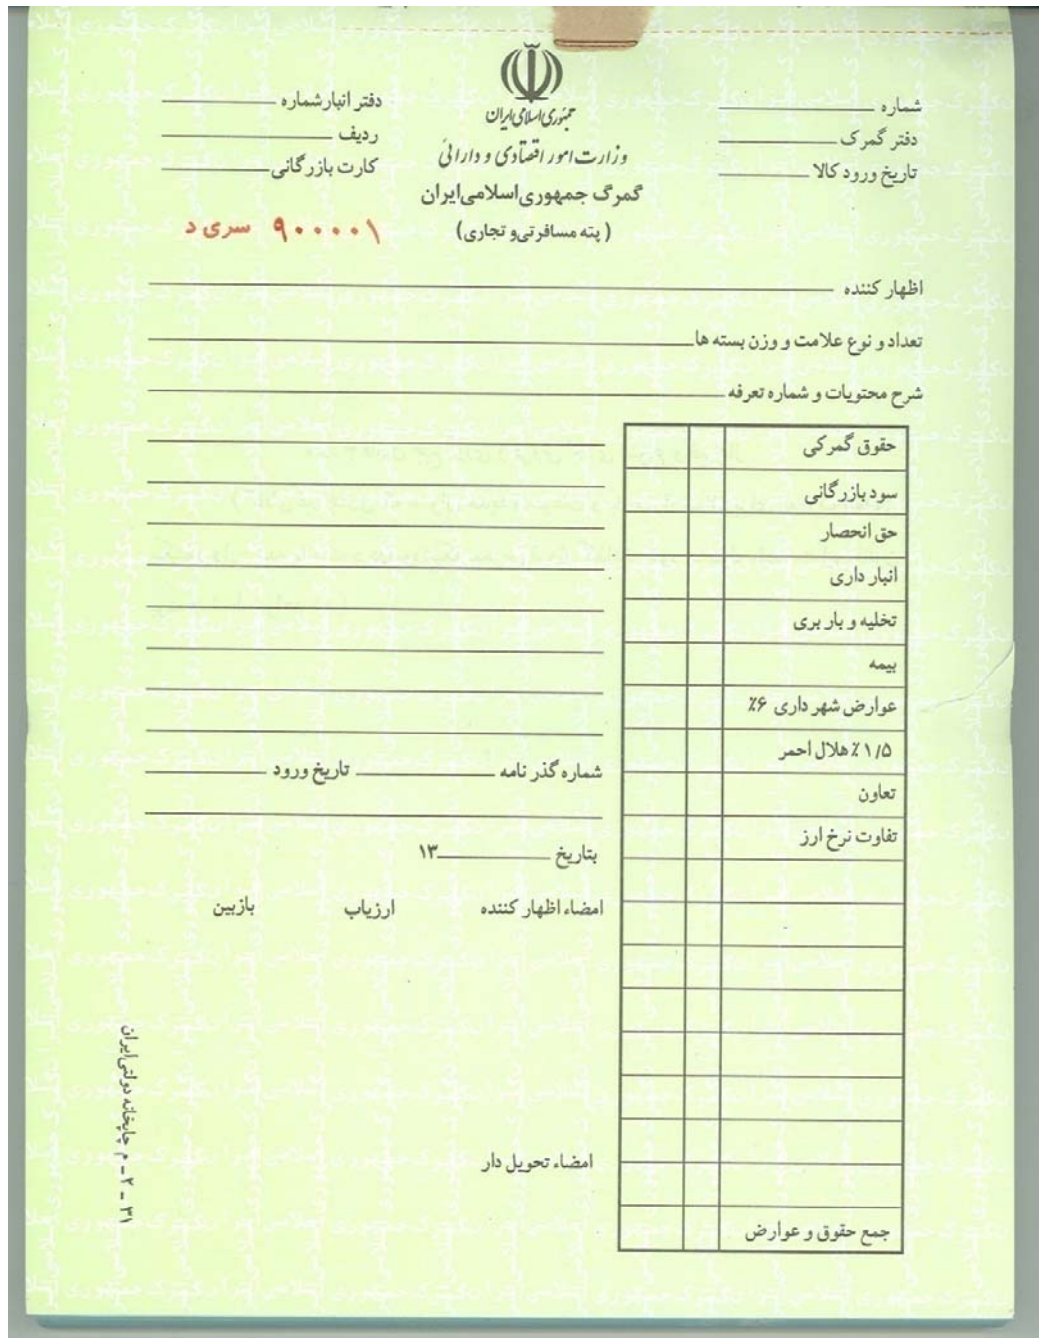 جمهوری اسلامی ایران
وزارت امور اقتصادی و دارائی
گمرگ جمهوری‌اسلامی‌ایران
( پته مسافرتی‌و تجاری)
شماره
دفتر گمرک
تاریخ ورود کالا
دفتر انبارشماره
ردیف
کارت بازرگانی
۹۰۰۰۰۱ سری د
اظهار کننده
تعداد و نوع علامت و وزن بسته ها
شرح محتویات و شماره تعرفه
حقوق گمرکی
سود بازرگانی
حق انحصار
انبار داری
تخلیه و بار بری
بیمه
عوارض شهر داری ۶٪
۱/۵ ٪ هلال احمر
تعاون
تفاوت نرخ ارز
جمع حقوق و عوارض
شماره گذر نامه تاریخ ورود
بتاریخ ۱۳
امضاء اظهار کننده ارزیاب بازبین
امضاء تحویل دار
۳۱ – ۲ – م چاپخانه دولتی‌ایران